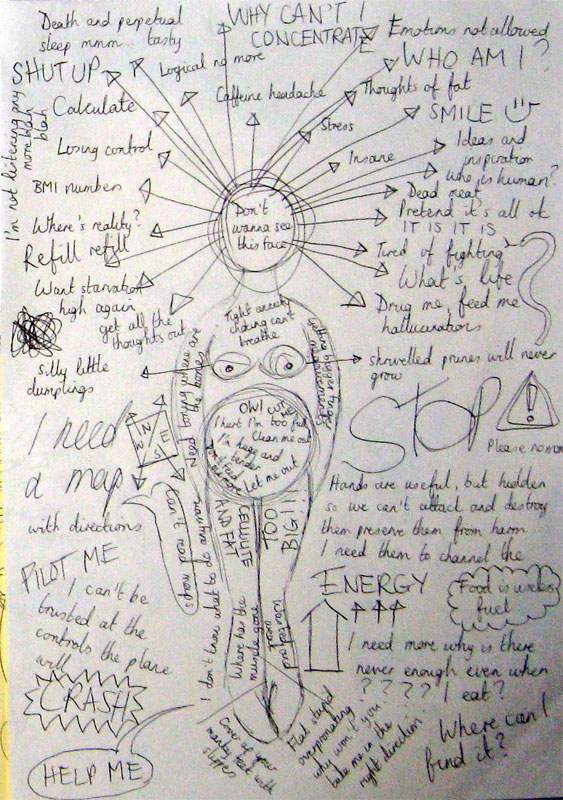 Death and perpetual
sleep mmm... tasty
WHY CAN'T I
CONCENTRATE
Emotions not allowed
SHUT UP
Logical no more
WHO AM I?
I'm not listening any
more blah
blah
Calculate
Caffeine headache
Thoughts of fat
SMILE
Stress
Losing control
Insane
Ideas and
inspiration
who is human?
BMI numbers
Dead meat
Don't
wanna see
this face
Where's reality?
Pretend it's all ok
IT IS IT IS
Refill refill
Tired of fighting
Want starvation
high again
What's life
get all the
thoughts out
Drug me, feed me
hallucinations
Tight anxiety
can't
breathe
Getting bigger
measurements
Need boring where are
the bones
silly little
dumplings
shrivelled prunes will never
grow
OW!
I hurt I'm too full
Clean me out
I'm huge and
tender
Let me out
STOP
!
Please no more
I need
a map
with directions
N
E
S
W
Can't read maps
I don't know what to do anymore
CELLULITE
AND FAT
TOO
BIG!!
Hands are useful, but hidden
so we can't attack and destroy
them preserve them from harm
I need them to channel the
ENERGY
Food is useless
fuel
PILOT ME
I can't be
trusted at the
controls the plane
will
CRASH
HELP ME
Where has the
muscle gone
I need more why is there
never enough even when
I eat?
? ? ? ?
Where can I
find it?
Cover up your
feet with
slippers
Flat stupid
overpronating
why won't you
take me in the
right direction